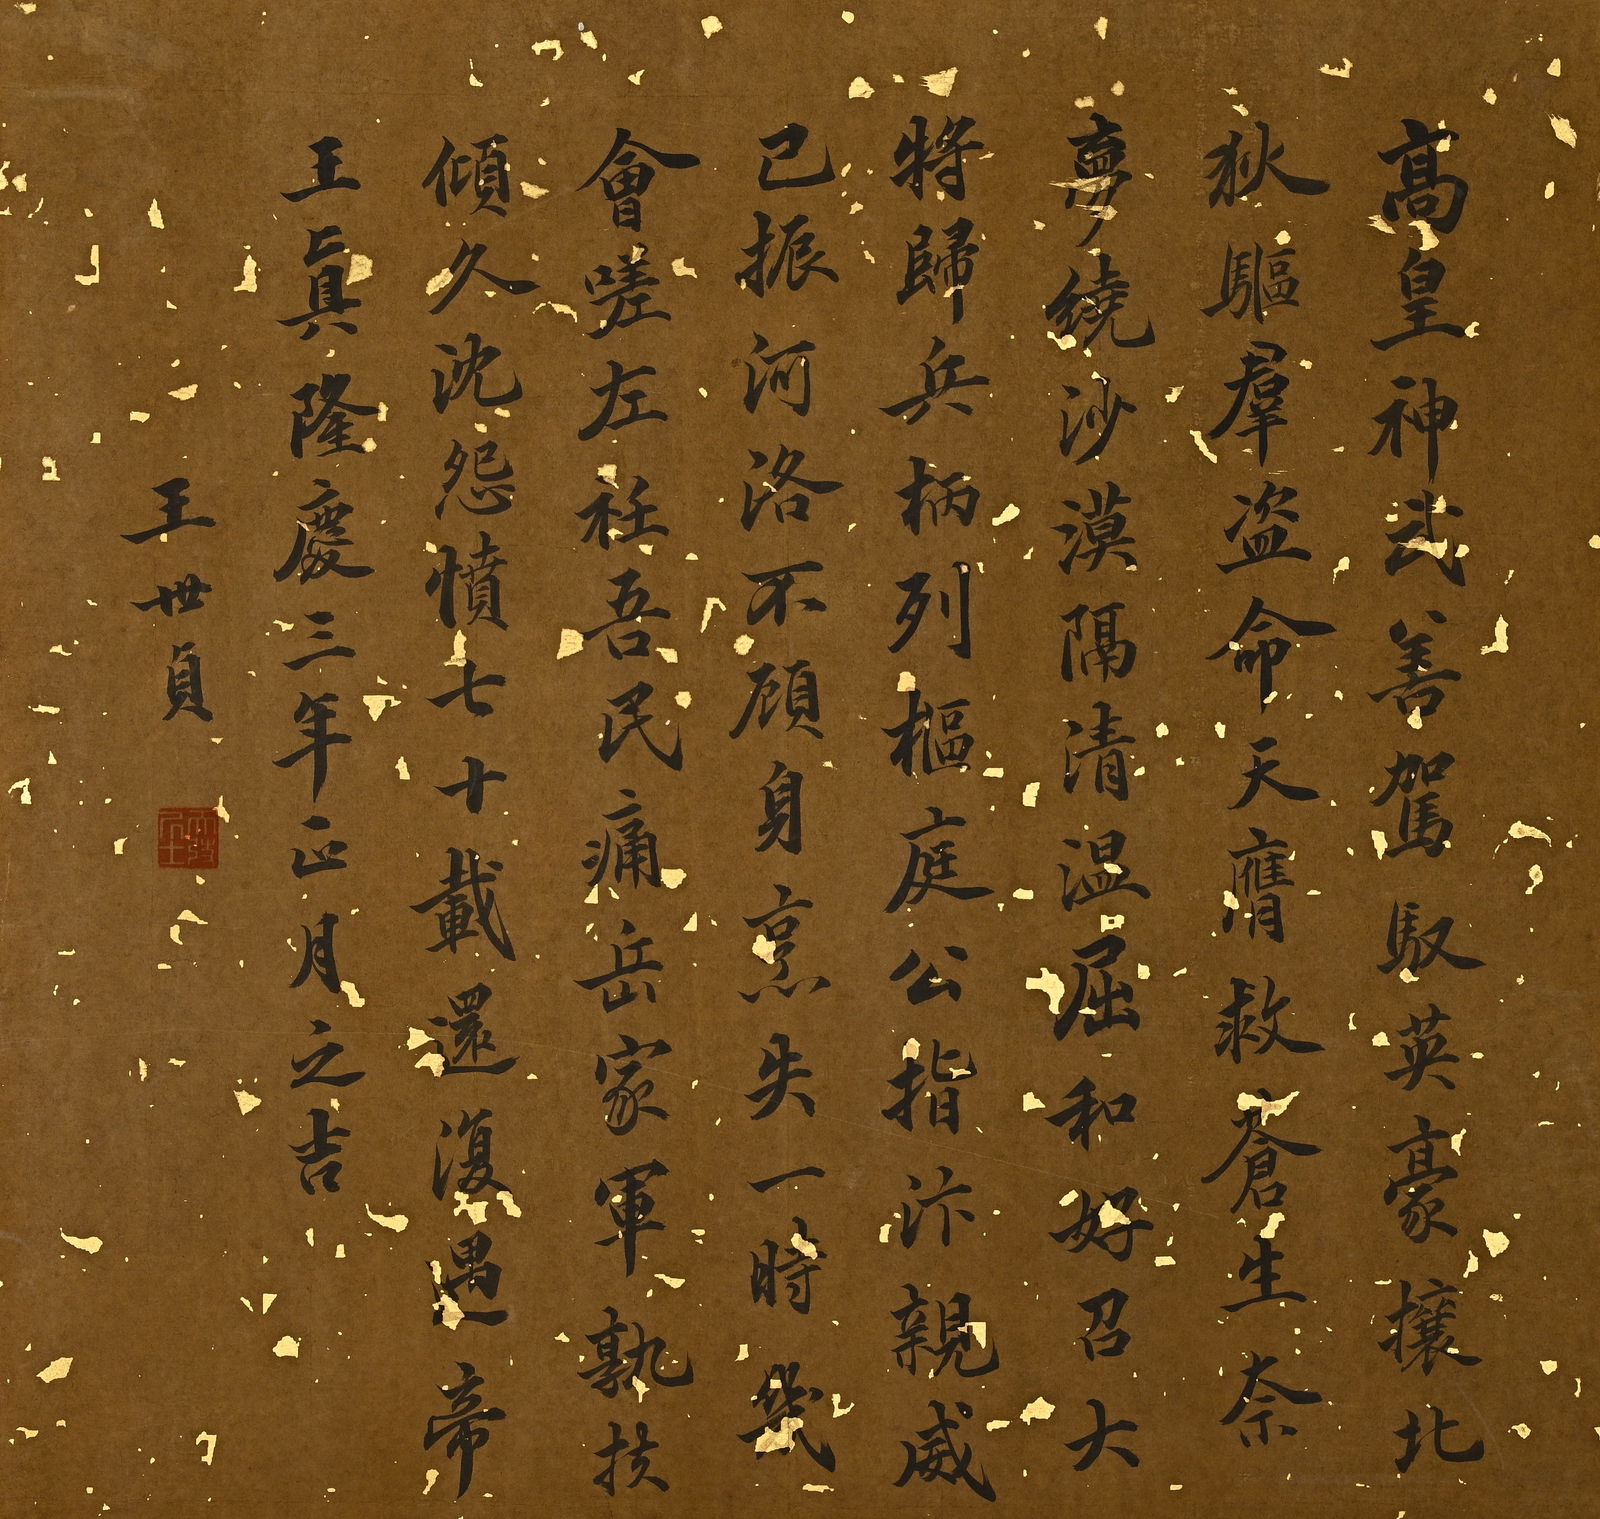 高皇神武善駕馭英豪攘北
狄驅羣盜命天膺救蒼生奈
夢繞沙漠隔清温屈和好召大
將歸兵柄列樞庭公指汴親威
已振河洛不顧身烹失一時幾
會嗟左衽吾民痛岳家軍孰扶
傾久沈怨憤七十載還復遇帝
王眞隆慶三年正月之吉
王世貞